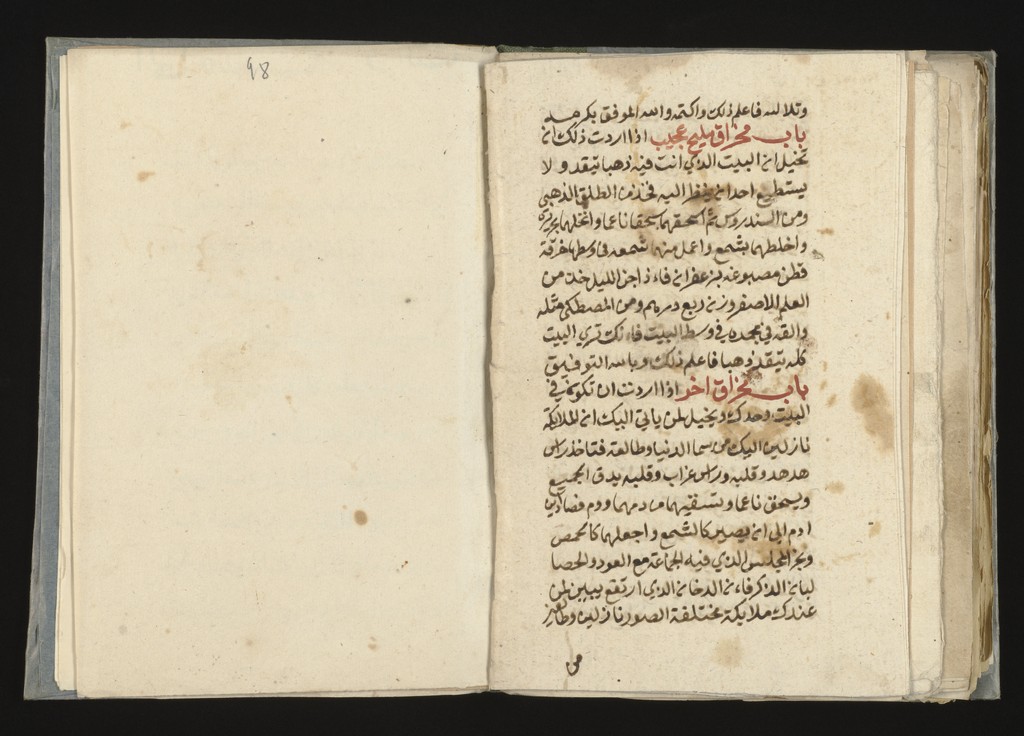 98
وتلالله فاعلم ذلك واكتمه والله الموفق بكرمه
باب مخراق مليح عجيب اذا اردت ذلك ان
تخيل ان البيت الذي انت فيه ذهبا يتقد ولا
يستطيع احد ان ينظر اليه فخذ من الطلق الذهبي
ومن السندروس ثم اسحقهما سحقا ناعما وانخلهما بحريرة
واخلطهما بشمع واعمل منهما شمعه في وسطها خرقة
قطن مصبوغه بزعفران فاذا جن الليل خذ من
العلم الاصفر وزن ربع درهم ومن المصطكي مثله
والقه في مجمره في وسط البيت فانك تري البيت
كله يتقد ذهبا فاعلم ذلك وبالله التوفيق
باب مخراق اخر اذا اردت ان تكون في
البيت وحدك ويخيل لمن ياتي اليك ان الملايكة
نازلين اليك من سما الدنيا وطالعة فتاخذ راس
هدهد وقلبه وراس غراب وقلبه يدق الجميع
ويسحق ناعما وتسقيهما من دمهما ودم فصادة ابن
ادم الي ان يصير كالشمع واجعلهما كالحمص
وبخر المجلس الذي فيه الجماعة مع العود والحصا
لبان الذكر فان الدخان الذي ارتفع يبين لمن
عندك ملايكة مختلفة الصور نازلين وطالعين
من